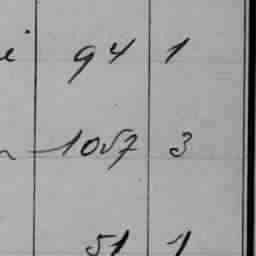 94 1
1057 3
51 1